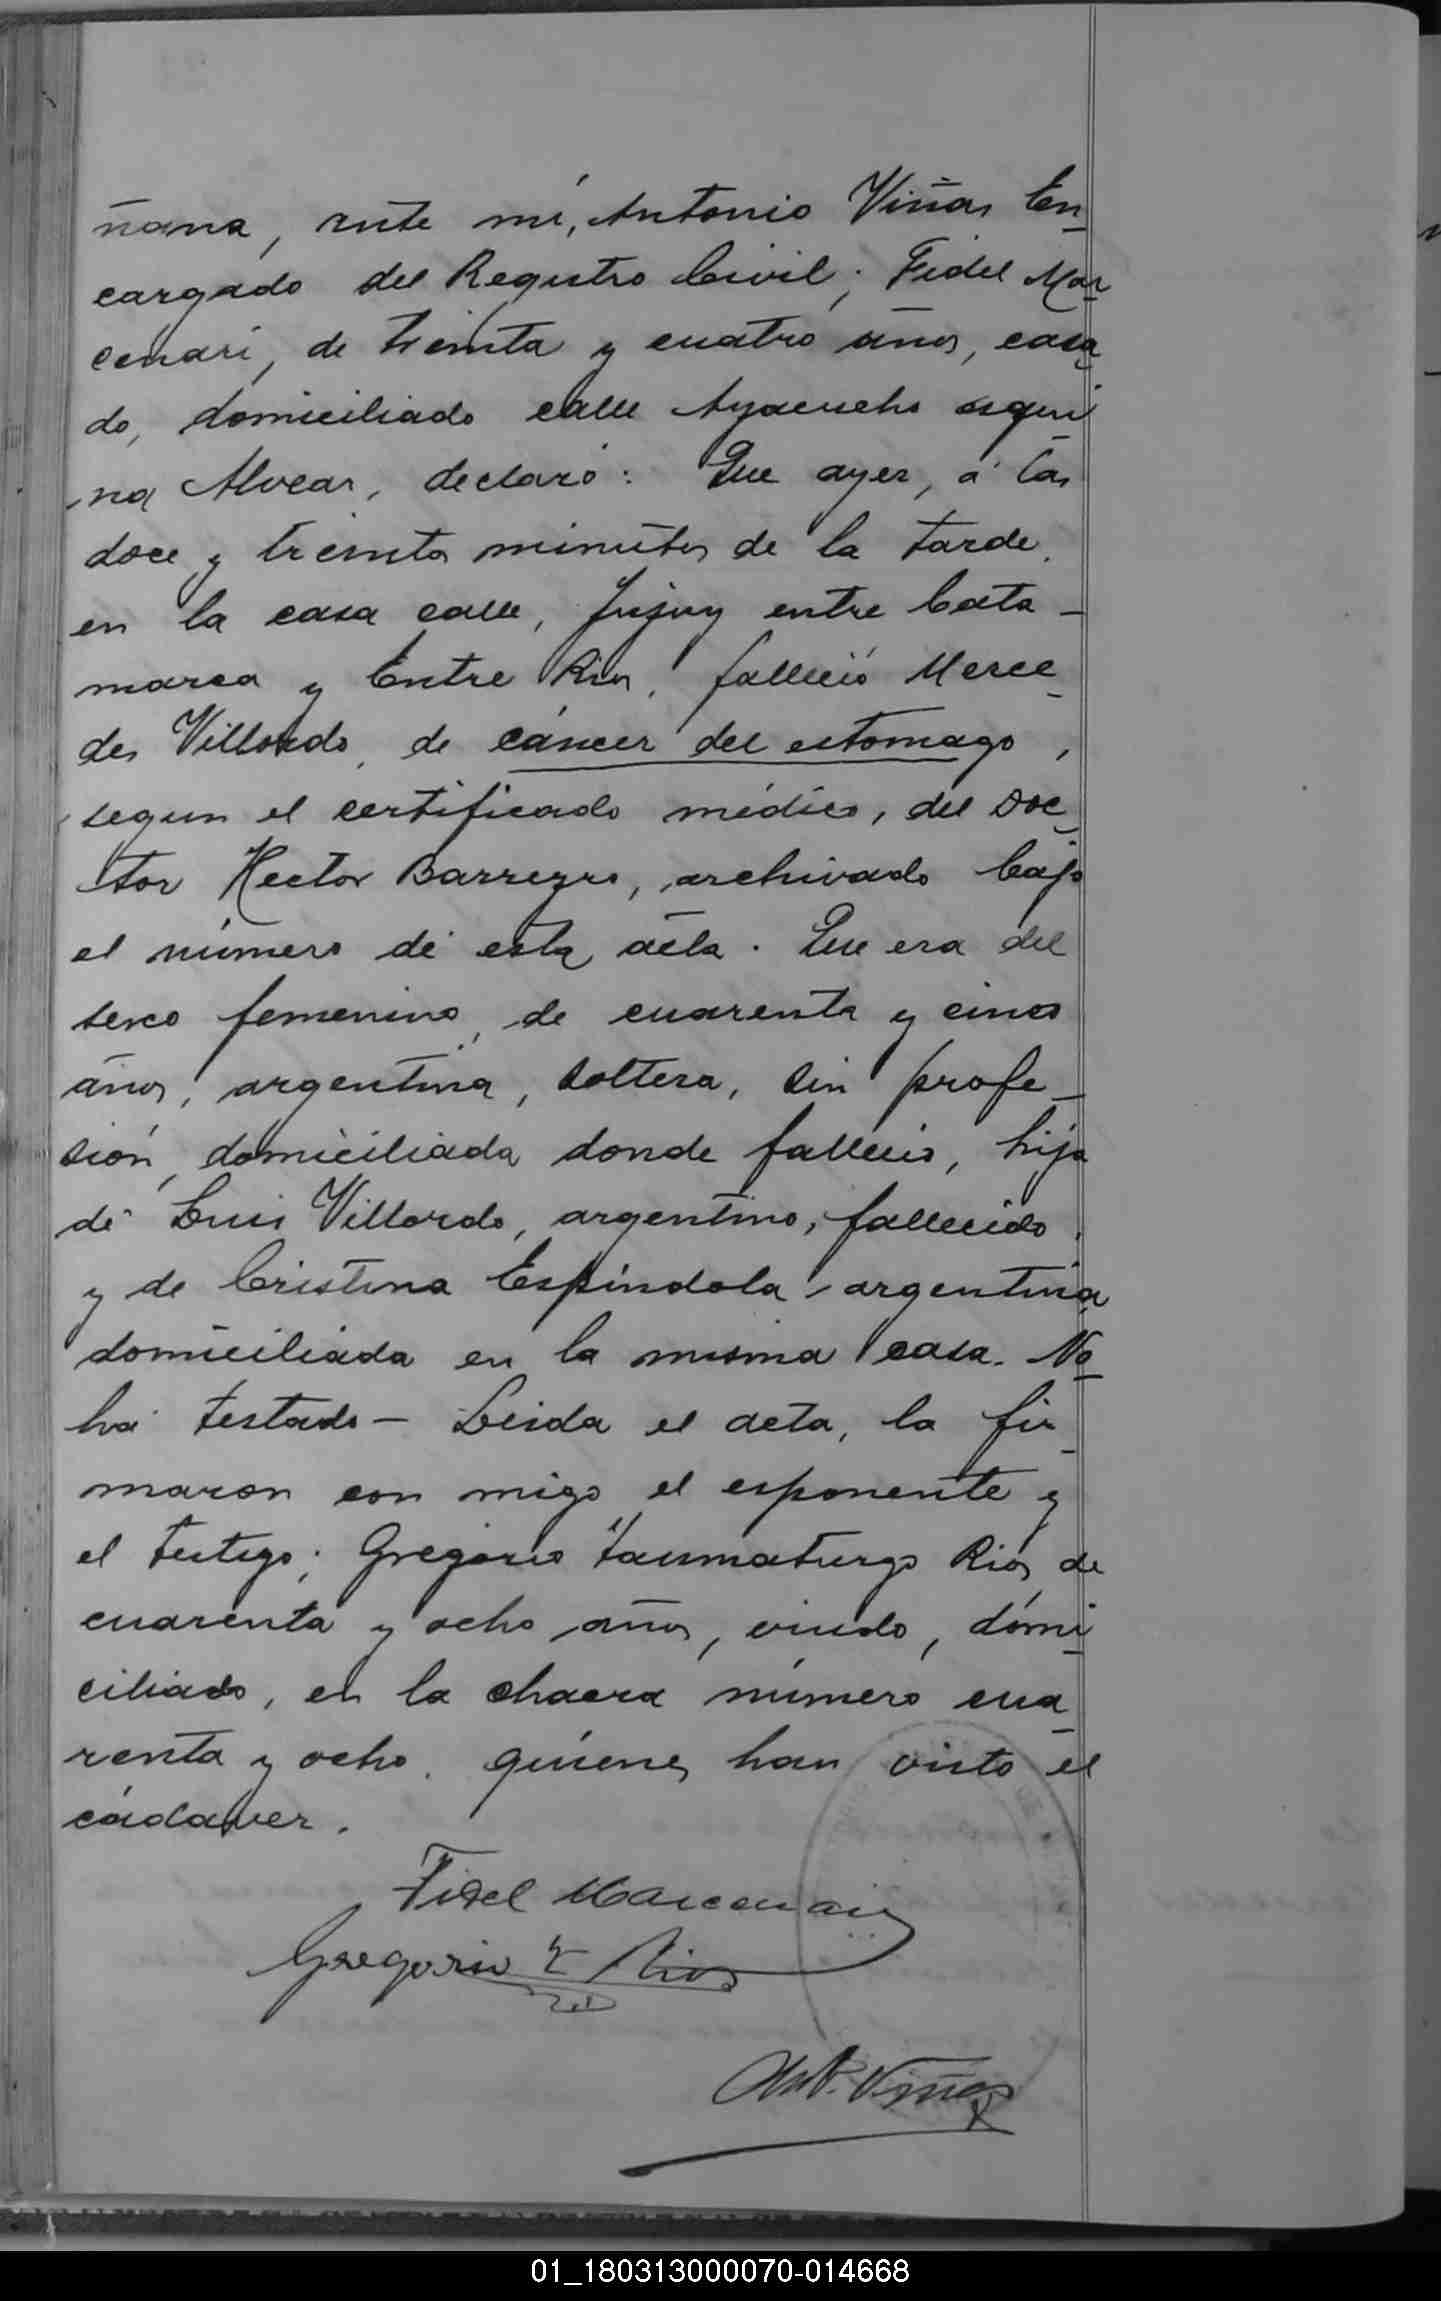 ñana, ante mi, Antonio Viñas En-
cargado del Registro Civil; Fidel Mar-
cenari, de treinta y cuatro años, casa-
do, domiciliado calle Ayacucho esqui-
na Alvear, declaró: Que ayer, á las
doce y treinta minutos de la tarde,
en la casa calle, Jujuy entre Cata-
marca y Entre Rios, falleció Merce-
des Villordo, de cáncer del estomago,
segun el certificado médico, del Doc-
tor Hector Barreyro, archivado bajo
el número de esta acta. Que era del
sexo femenino, de cuarenta y cinco
años, argentina, soltera, sin profe-
sión, domiciliada donde falleció, hija
de Luis Villordo, argentino, fallecido,
y de Cristina Espíndola, argentina,
domiciliada en la misma casa. No
ha testado – Leida el acta, la fir-
maron con migo el esponente y
el testigo; Gregorio Taumaturgo Rios, de
cuarenta y ocho años, viudo, domi-
ciliado, en la chacra número cua-
renta y ocho, quienes han visto el
cádaver.
Fidel Marcenari
Gregorio T Rios
Ant. Viñas
01_180313000070-014668